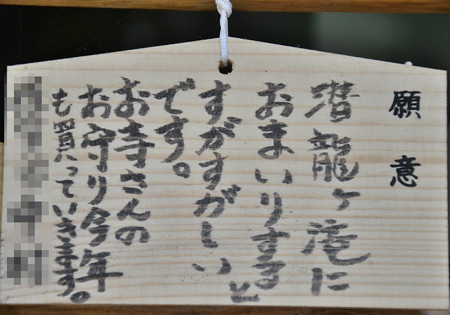 願意
潜龍ヶ滝に
おまいりすると
すがすがしい
です。
お寺さんの
お守り今年
も買っていきます。